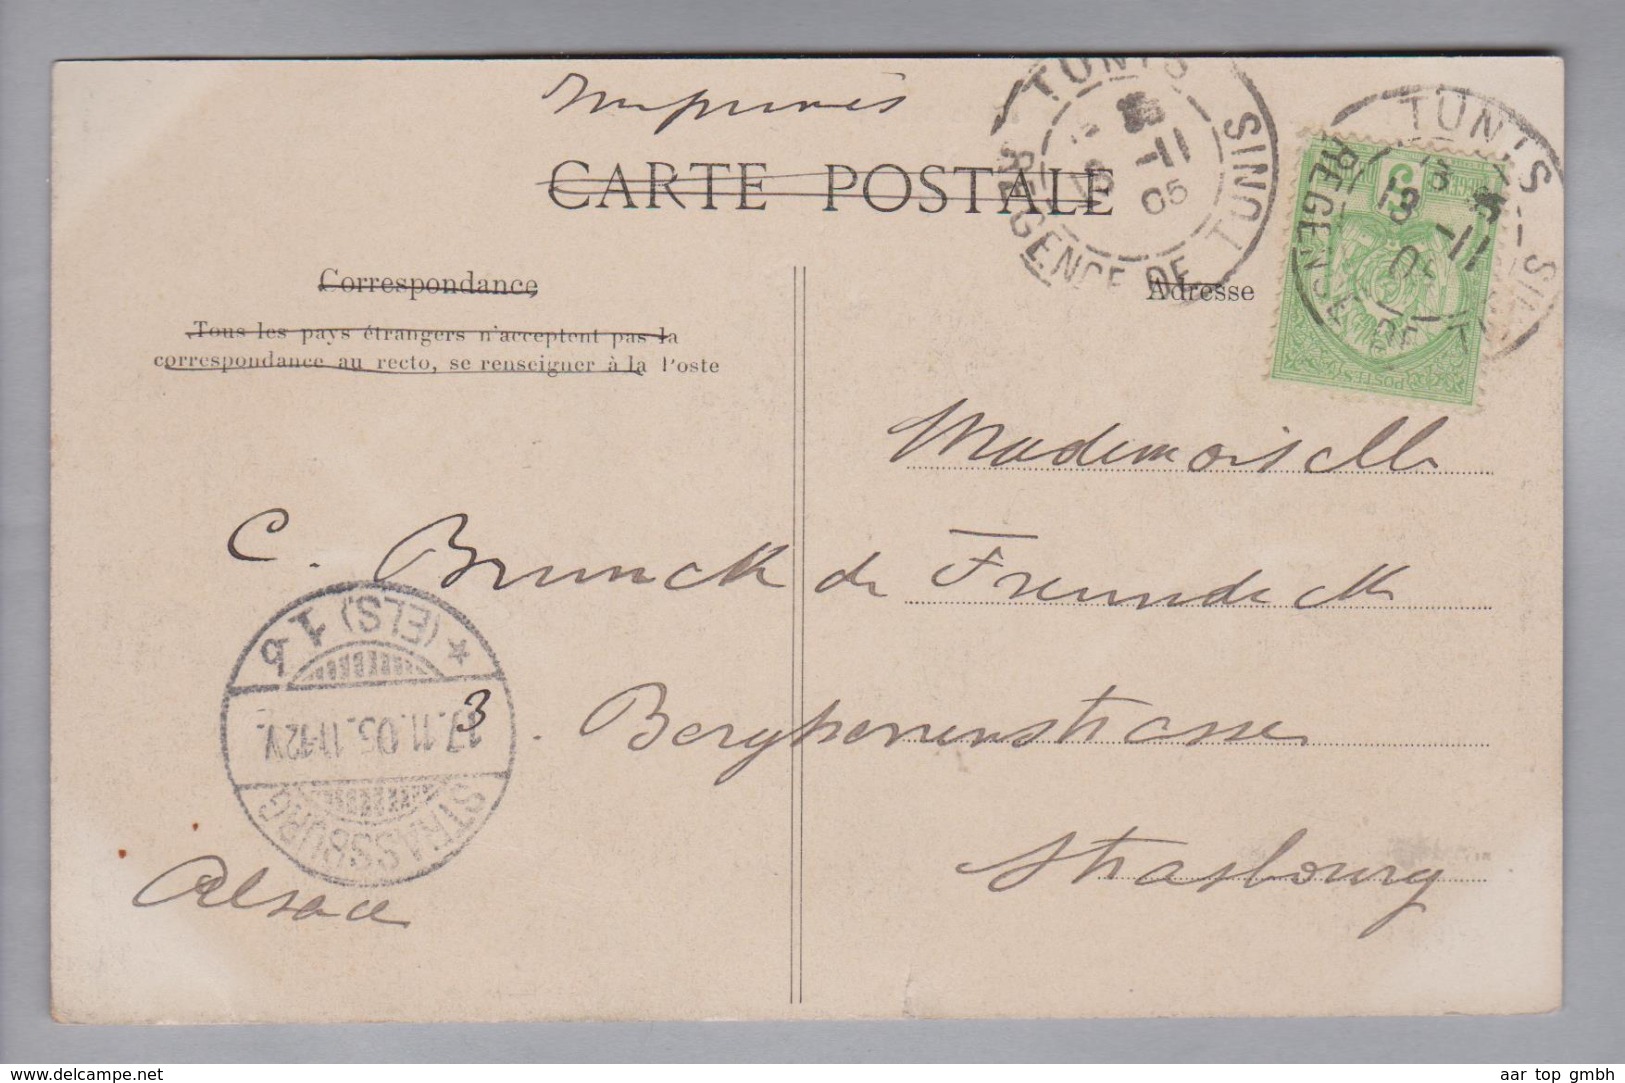 Imprimés
CARTE POSTALE
TUNIS
TUNIS
REGENCE DE
11
05
TUNIS
REGENCE DE
13
-11
05
5
POSTES
Correspondance
Adresse
Tous les pays étrangers n'acceptent pas la
correspondance au recto, se renseigner à la Poste
Mademoiselle
C. Brunck de Freundeck
3. Bergherrenstrasse
Strasbourg
Alsace
STRASSBURG
17.11.05.11-12V.
* (ELS.) 1 b
www.delcampe.net
aar top gmbh